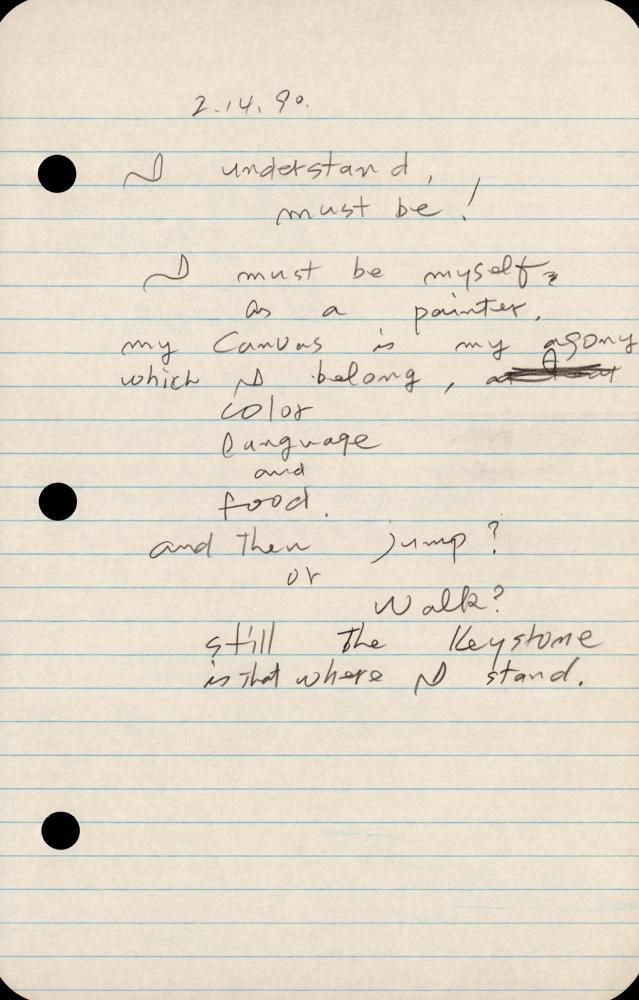 2.14.90.
I understand,
must be!
I must be myself,
as a painter.
my Canvas is my agony
which I belong,
color
language
and
food.
and then jump?
or
Walk?
still the Keystone
is that where I stand.